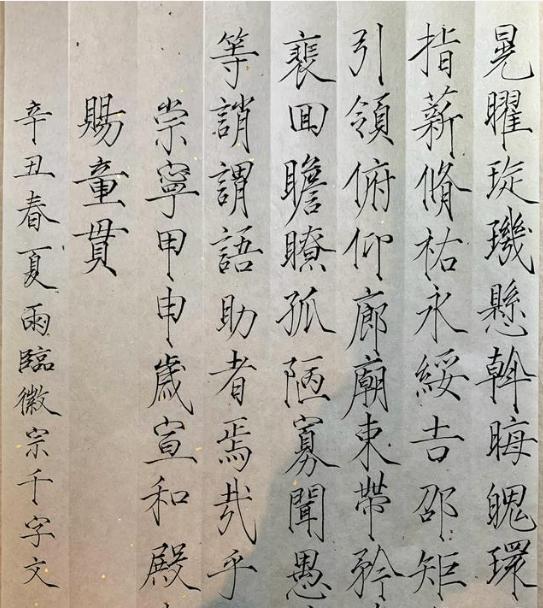 晃曜琁璣懸斡晦魄環
指薪脩祐永綏吉邵矩
引領俯仰廊廟束帶矜
裵囬瞻瞭孤陋寡聞愚
等誚謂語助者焉哉乎
崇寧甲申歲宣和殿
賜童貫
辛丑春夏雨臨徽宗千字文